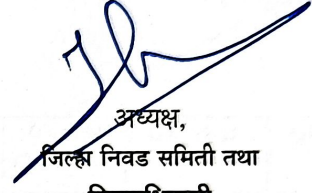 अध्यक्ष,
जिल्हा निवड समिती तथा